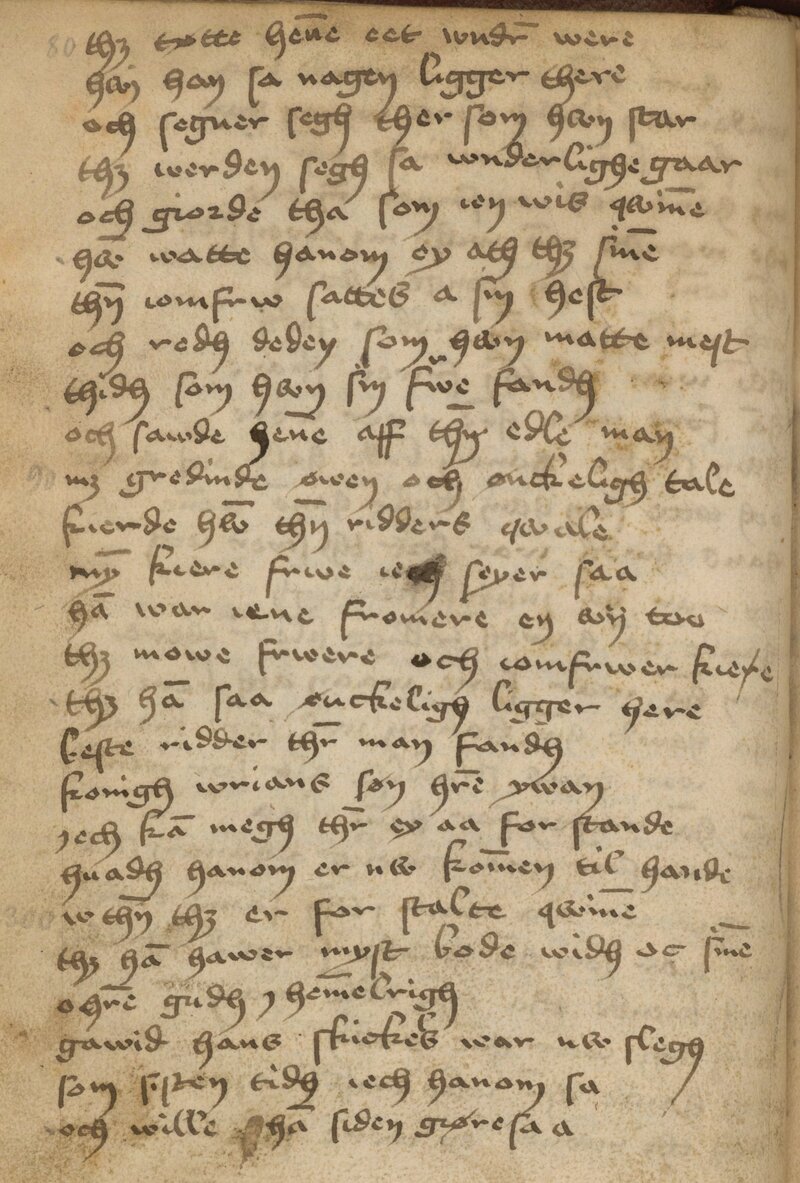 thꝫ tøtte hen̅e eet wndr̅ were
hwn han sa nagen ligger there
och segner segh ther som hwn star
thꝫ werden segh sa wnderlighe gaar
och giorde tha som ien wis qwin̅e
hw̅ watte hanom ey ath thꝫ sin̅e
thn̅ iomfrw sattes a sin hest
och redh deden som hwn matte mest
thidh som hwn sin frwe fandh
och sawde hen̅e aff thn̅ edle man
mꝫ gredinde øwen och ønckeligh tale
kierde hw̅ thn̅ ridders qwale
my̅ kiere frwe iech seyer saa
ha̅ war iene fromere en wy too
thꝫ mowe frwere och iomfrwer kiere
thꝫ ha̅ saa ønckeligh ligger here
beste ridder thr̅ man fandh
konigh wrians søn hr̅e ywan
iech ka̅ megh thr̅ ey aa for stande
huadh hanom er nw kom̅en til hande
w thn̅ thꝫ er for stalte qwin̅e
thꝫ ha̅ hawer myst bode widh oc sin̅e
o hr̅e gudh j hem̅elrigh
gawid hans skickels war nw slegh
som sisten tidh iech hanom sa
och wille ha̅ siden gøre sa a